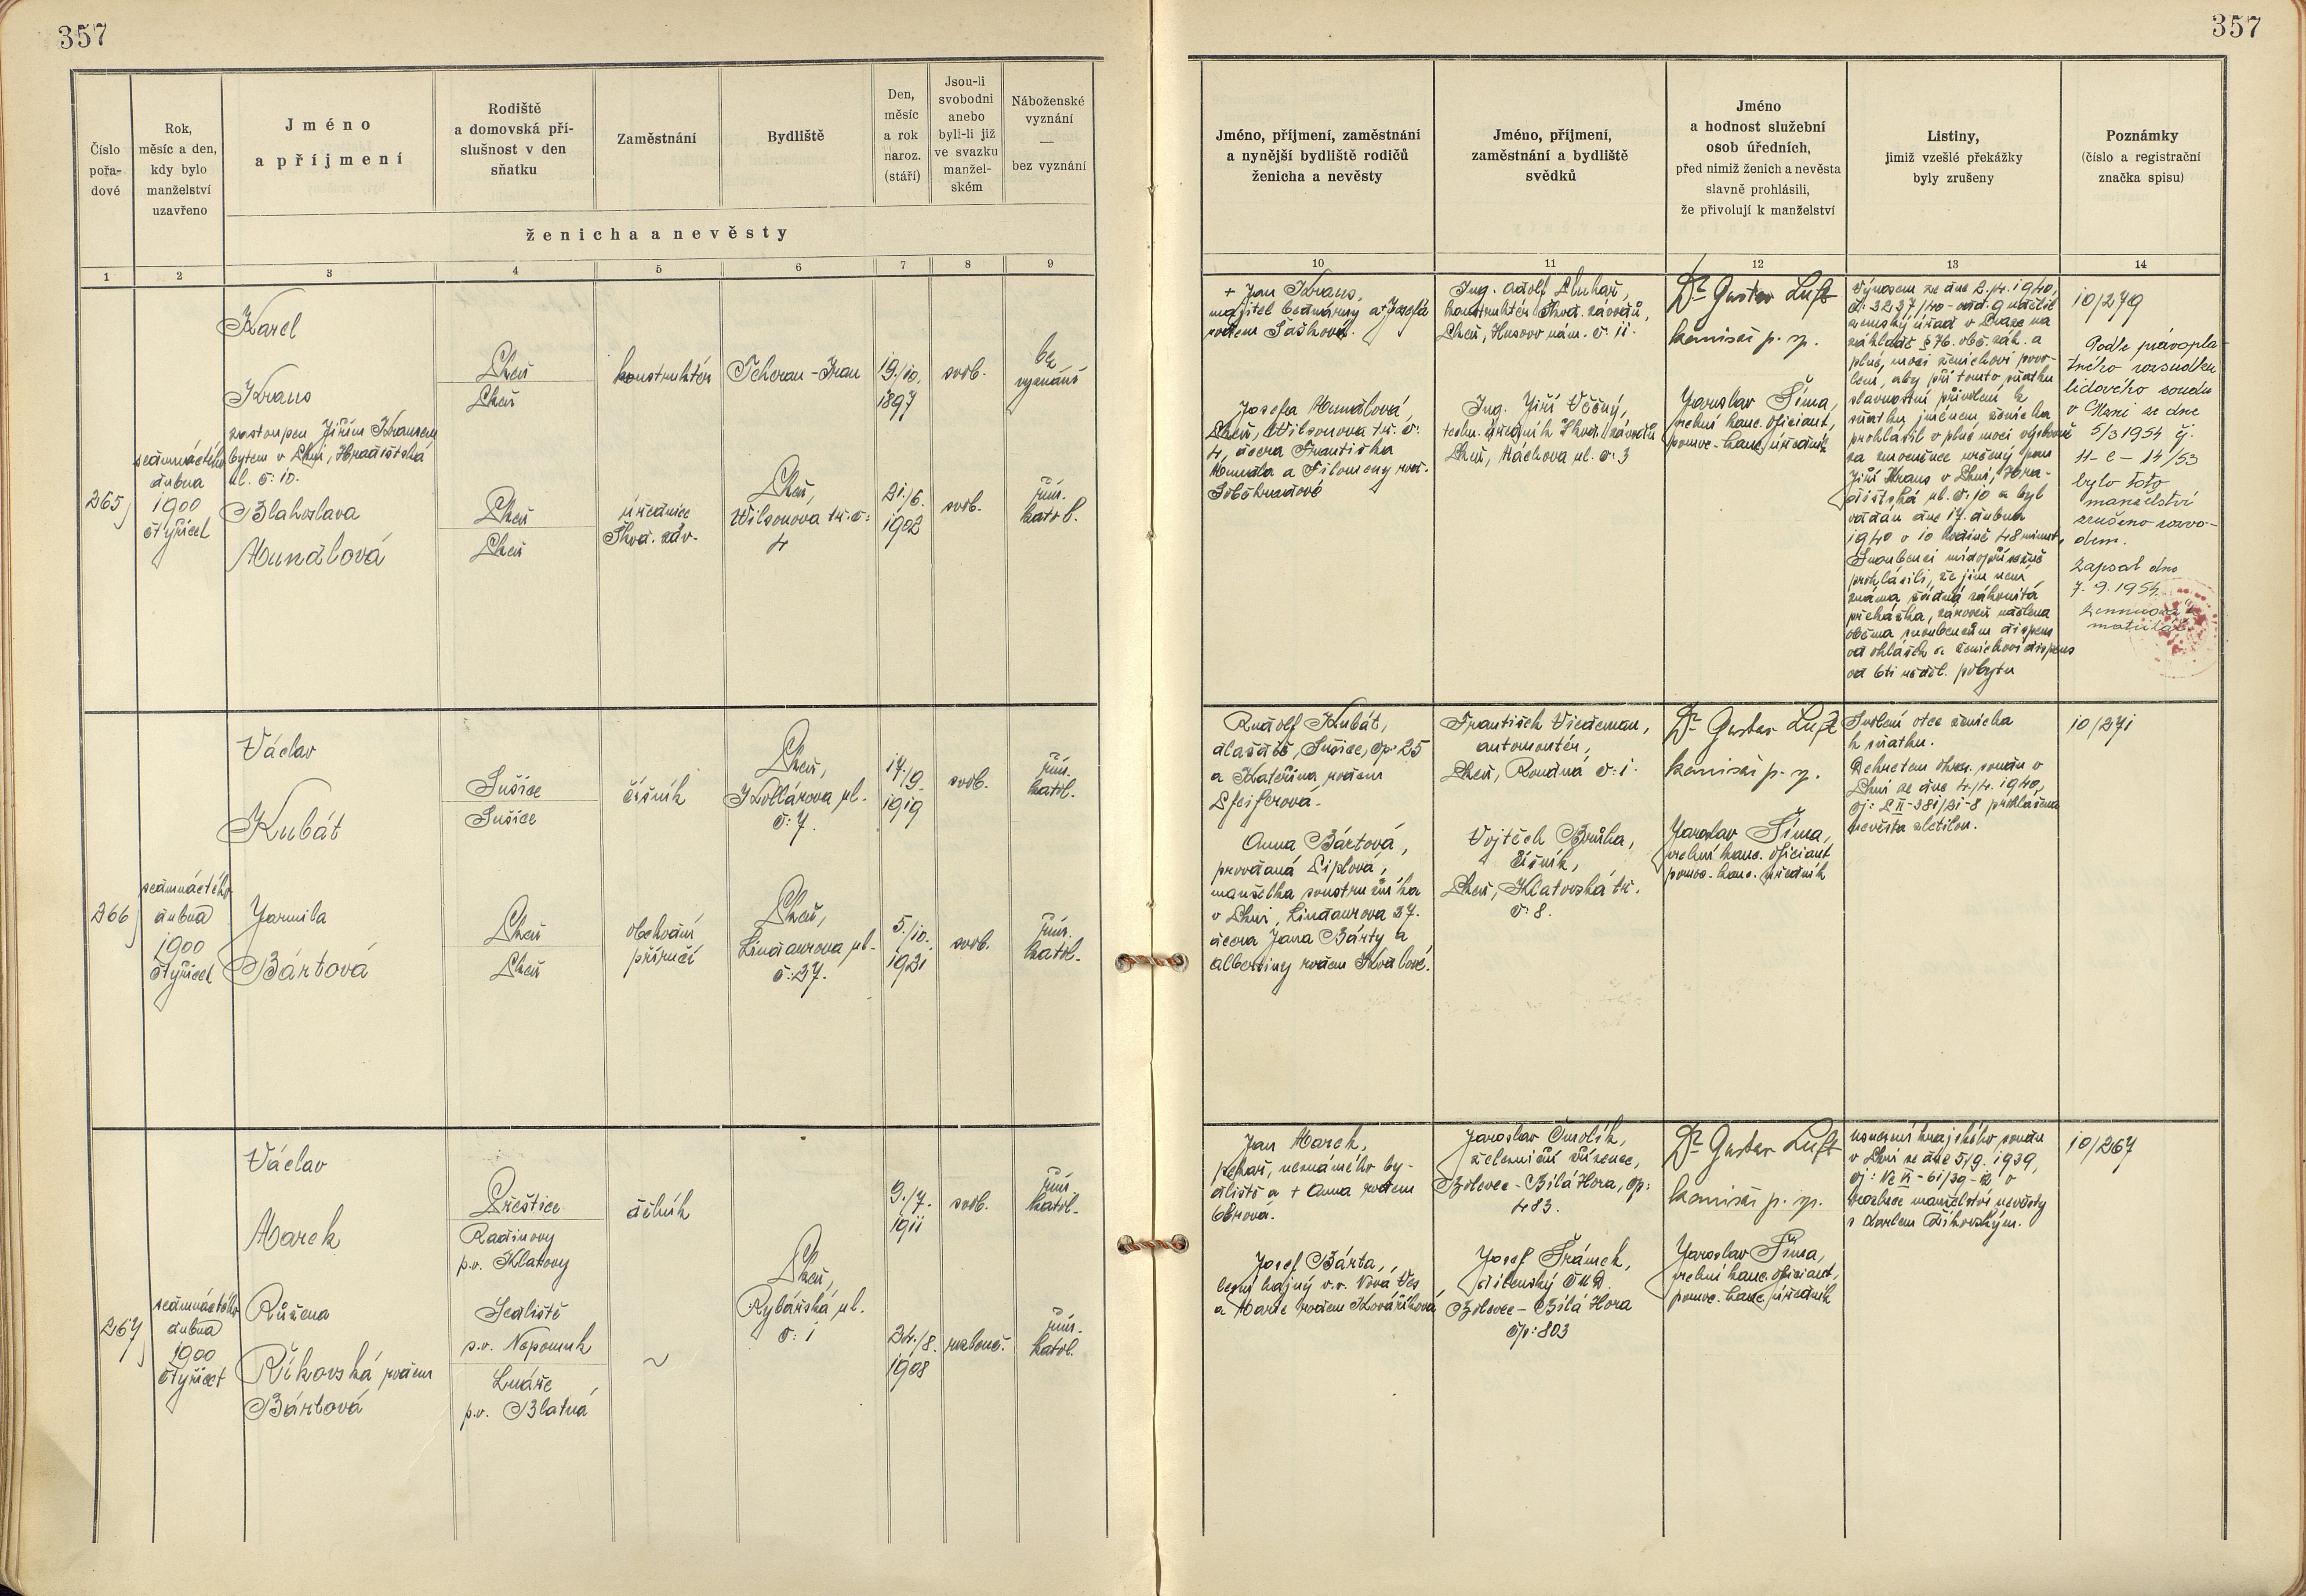 357
357
Číslo
pořa-
dové
Rok,
měsíc a den,
kdy bylo
manželství
uzavřeno
Jméno
a příjmení
Rodiště
a domovská pří-
slušnost v den
sňatku
Zaměstnání
Bydliště
Den,
měsíc
a rok
naroz.
(stáří)
Jsou-li
svobodni
anebo
byli-li již
ve svazku
manžel-
ském
Náboženské
vyznání
—
bez vyznání
ženicha a nevěsty
Jméno, příjmení, zaměstnání
a nynější bydliště rodičů
ženicha a nevěsty
Jméno, příjmení,
zaměstnání a bydliště
svědků
Jméno
a hodnost služební
osob úředních,
před nimiž ženich a nevěsta
slavně prohlásili,
že přivolují k manželství
Listiny,
jimiž vzešlé překážky
byly zrušeny
Poznámky
(číslo a registrační
značka spisu)
1 2 3 4 5 6 7 8 9 10 11 12 13 14
265
sedmnáctého
dubna
1900
čtyřicet
Karel
Kraus
zastoupen Jiřím Krausem
bytem v Plzni, Hradištská
ul. č: 10.
Blahoslava
Hunalová
Plzeň
Plzeň
Plzeň
Plzeň
konstruktér
úřednice
Škod. záv.
Teheran - Iran
Plzeň,
Wilsonova tř. č:
4
19./10.
1897
21./6.
1902
svob.
svob.
bez
vyznání
řím.
katol.
+ Jan Kraus,
majitel bednárny a + Josefa
rodem Šašková.
Josefa Hunalová,
Plzeň, Wilsonova tř. č:
4, dcera Františka
Hunala a Filomeny roz.
Ing. Adolf Pluhař,
konstruktér Škod. závodů,
Plzeň, Husovo nám. č: 11.
Ing. Jiří Věčný,
techn. úředník Škod. závodů
Plzeň, Máchova ul. č: 3
Dr Gustav Luft
komisař p. sp.
Jaroslav Šíma,
vrchní kanc. oficiant,
pomoc. kanc. úředník
Výnosem ze dne 2./4. 1940,
č: 3237/40 - odd. 9 udělil
zemský úřad v Praze na
základě § 76. obč. zák. a
plné moci ženichovi povo-
lení, aby při tomto sňatku
slavnostní přivolení k
sňatku jménem ženicha
prohlásil v plné moci
za zmocněnce určený pan
Jiří Kraus v Plzni, Hra-
dištská ul. č: 10 a byl
oddán dne 17. dubna
1940 v 10 hodině 48 minut.
Snoubenci místopřísežně
prohlásili, že jim není
známa žádná zákonitá
překážka, zároveň udělena
oběma snoubencům dispens
od ohlášek a ženichovi dispens
od 6ti neděl. pobytu
10/279
Podle pravopla-
tného rozsudku
lidového soudu
v Plzni ze dne
5/3 1954 čj.
11 - C - 14/53
bylo toto
manželství
zrušeno rozvo-
dem.
Zapsal dne
7. 9. 1954.
matrikář
266
sedmnáctého
dubna
1900
čtyřicet
Václav
Kubát
Jarmila
Bártová
Sušice
Sušice
Plzeň
Plzeň
číšník
obchodní
příručí
Plzeň,
Kollárova ul.
č: 7.
Plzeň,
Lindaurova ul.
č: 37.
17./9.
1919
5./10.
1921
svob.
svob.
řím.
katol.
řím.
katol.
Rudolf Kubát,
dlaždič, Sušice, čp: 25
a Kateřina rodem
Pfeiferová.
Anna Bártová,
provdaná Liplová,
manželka soustružníka
v Plzni, Lindaurova 37.
dcera Jana Bárty a
Albertiny rodem Koválové.
František Wiedeman,
automontér,
Plzeň, Roudná č: 1.
Vojtěch Brůha,
číšník,
Plzeň, Klatovská tř.
č: 8.
Dr Gustav Luft
komisař p. sp.
Jaroslav Šíma,
vrchní kanc. oficiant
pomoc. kanc. úředník
Svolení otce ženicha
k sňatku.
Dekretem okres. soudu v
Plzni ze dne 4./4. 1940,
prohlášena
nevěsta zletilou.
10/271
267
sedmnáctého
dubna
1900
čtyřicet
Václav
Marek
Růžena
Řikovská rodem
Bártová
Přeštice
Radinovy
p. o. Klatovy
Sedliště
p. o. Nepomuk
Lnáře
p. o. Blatná
dělník
~
Plzeň,
Rybářská ul.
č: 1
9./7.
1911
24./8.
1908
svob.
rozlouč.
řím.
katol.
řím.
katol.
Jan Marek,
pekař, neznámého by-
dliště a + Anna rodem
Josef Bárta,
lesní hajný v. v. Nová Ves
a Marie rodem Kovaříková
Jaroslav Smolík,
železniční zřízenec,
Bolevec - Bílá Hora, čp:
483.
Josef Šrámek,
dílenský ČMD.
Bolevec - Bílá Hora
čp: 803
Dr Gustav Luft
komisař p. sp.
Jaroslav Šíma,
vrchní kanc. oficiant,
pomoc. kanc. úředník
usnesení krajského soudu
v Plzni ze dne 5/9. 1939,
rozluce manželství nevěsty
s Karlem Řikovským.
10/267